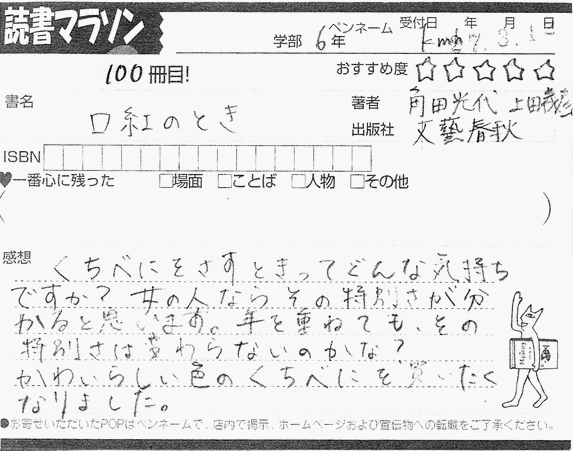 読書マラソン
学部 6年 ペンネーム 受付日 年 月 日
100冊目!
おすすめ度 ☆☆☆☆☆
書名 口紅のとき
著者 角田光代 上田義彦
出版社 文藝春秋
ISBN
♥一番心に残った □場面 □ことば □人物 □その他
感想
くちべにをさすときってどんな気持ち
ですか? 女の人ならその特別さが分
かると思います。年を重ねても、その
特別さは変わらないのかな?
かわいらしい色のくちべにを買いたく
なりました。
●お寄せいただいたPOPはペンネームで、店内で掲示、ホームページおよび宣伝物への転載をご了承ください。